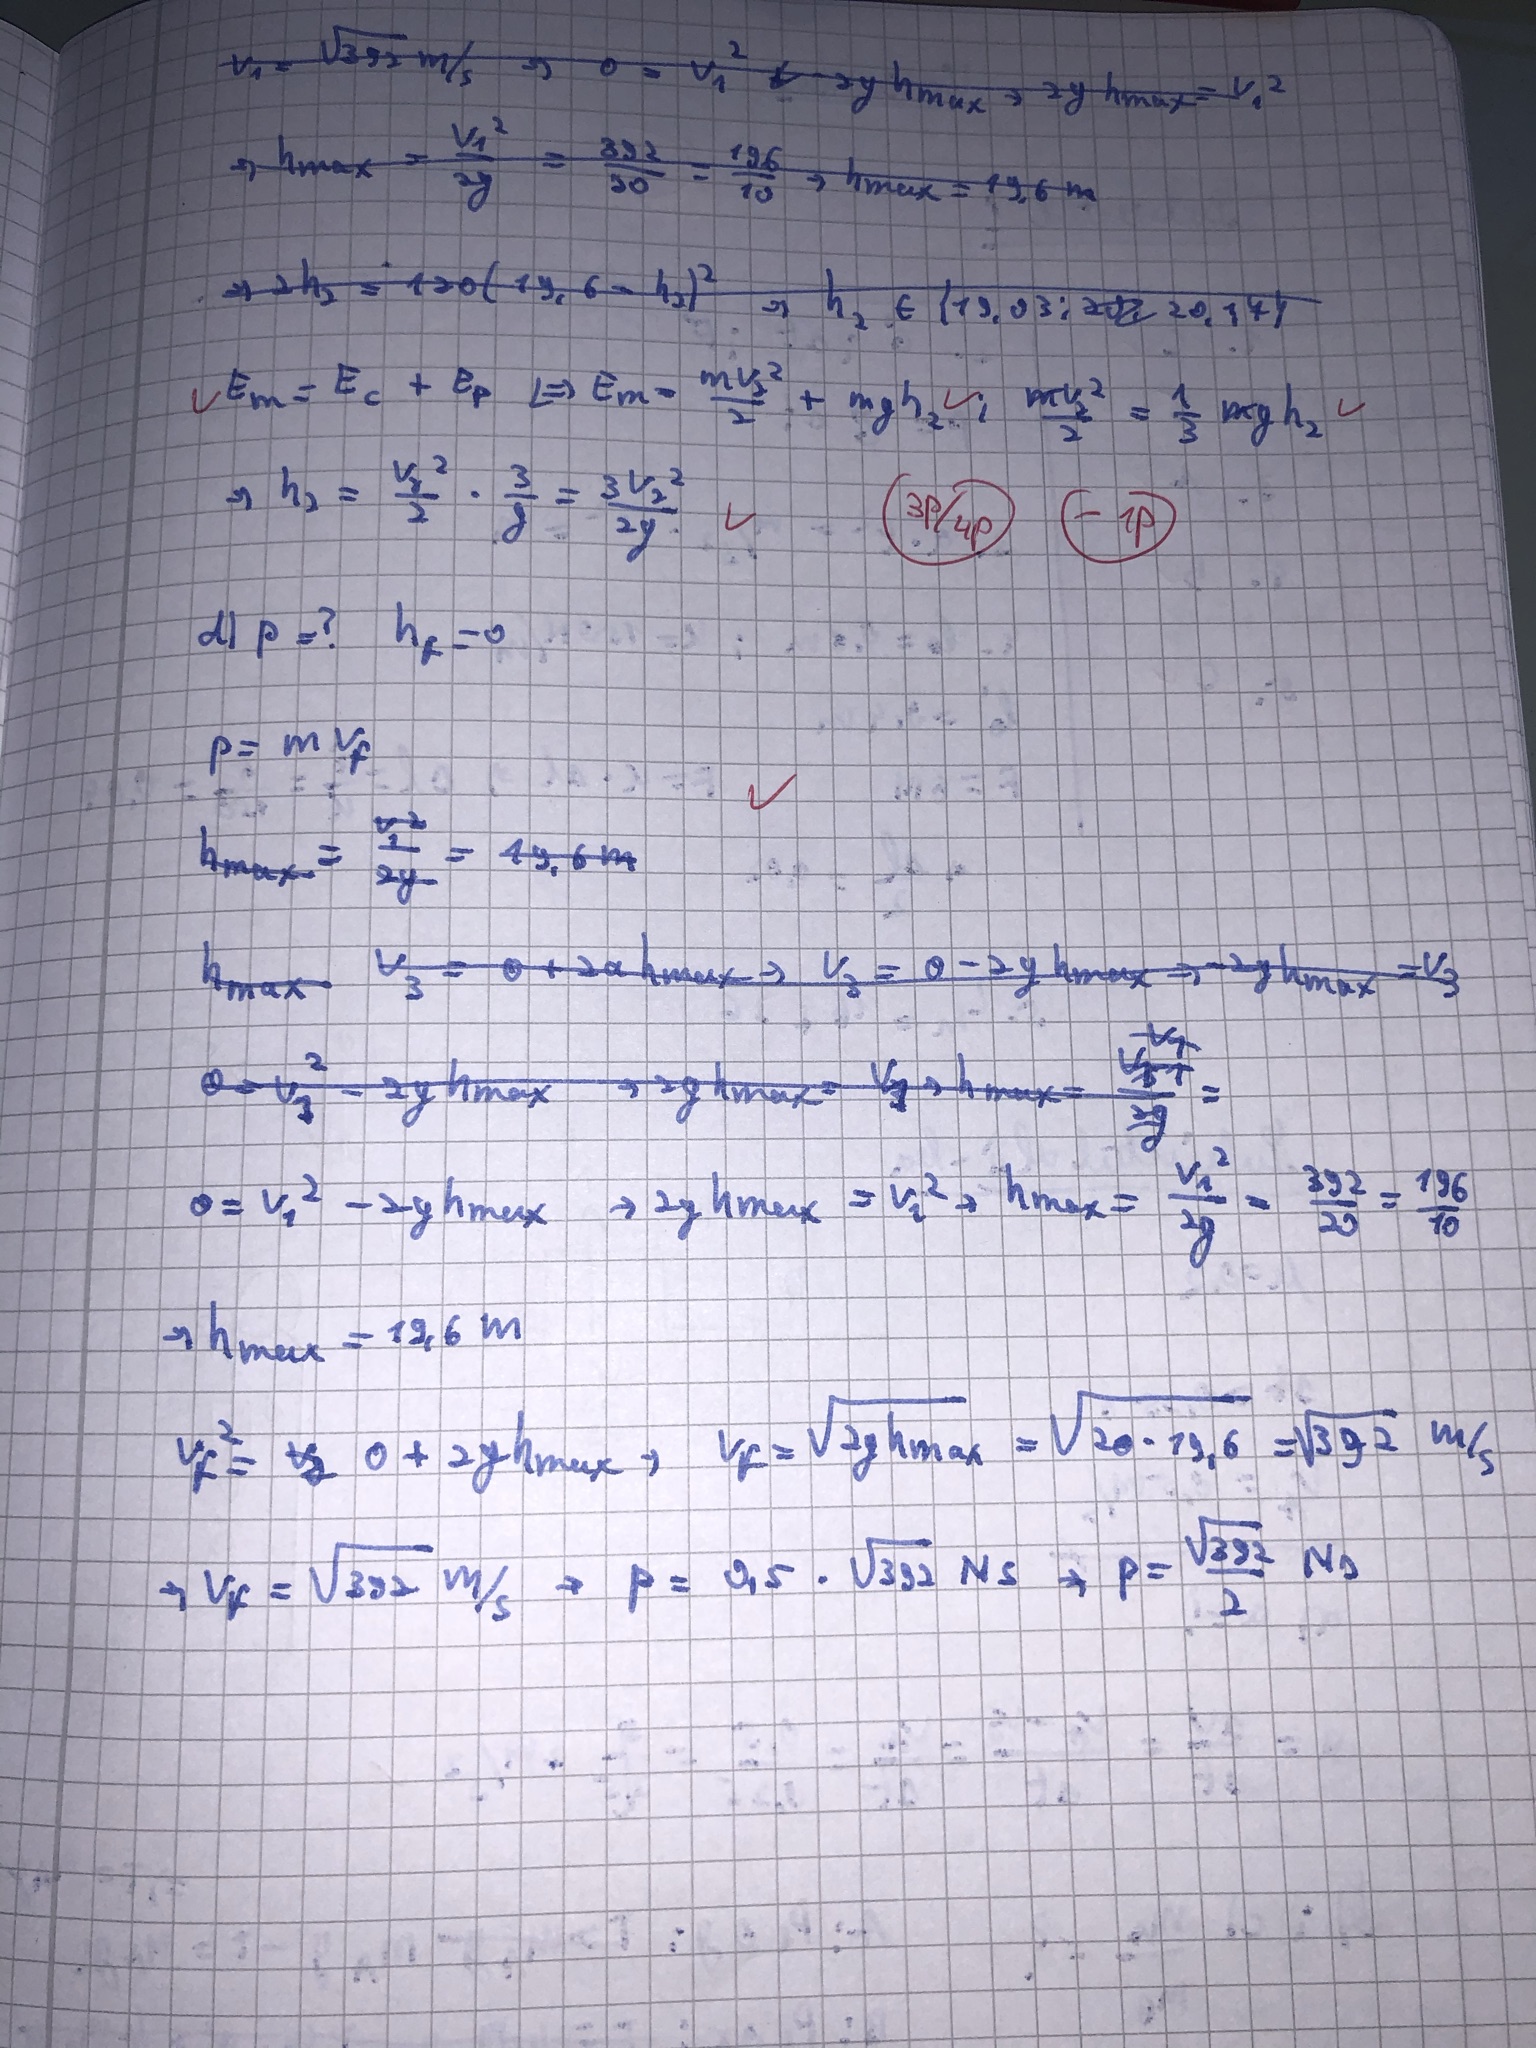 v₁ = √392 m/s → 0 = v₁² + 2g hmax → 2g hmax = v₁²
→ hmax = v₁²/2g = 392/20 = 196/10 → hmax = 19,6 m
→ 2h₂ = 120(19,6 - h₂)² → h₂ ∈ {19,03; 20,17}
✓ Em = Ec + Ep ⇔ Em = mv₂²/2 + mgh₂ ✓; mv₂²/2 = 1/3 mgh₂ ✓
→ h₂ = v₂²/2 · 3/g = 3v₂²/2g ✓ 3p/4p - 1p
d) p = ? hf = 0
p = m vf
✓
hmax = v₁²/2g = 19,6 m
hmax v₃ = 0 + 2a hmax → v₃ = 0 - 2g hmax → -2g hmax = v₃
0 = v₃² - 2g hmax → 2g hmax = v₁ → hmax = v₁/2g =
0 = v₁² - 2g hmax → 2g hmax = v₁² → hmax = v₁²/2g = 392/20 = 196/10
→ hmax = 19,6 m
vf² = 0 + 2g hmax → vf = √2g hmax = √20·19,6 = √392 m/s
→ vf = √392 m/s → p = 0,5 · √392 Ns → p = √392/2 Ns